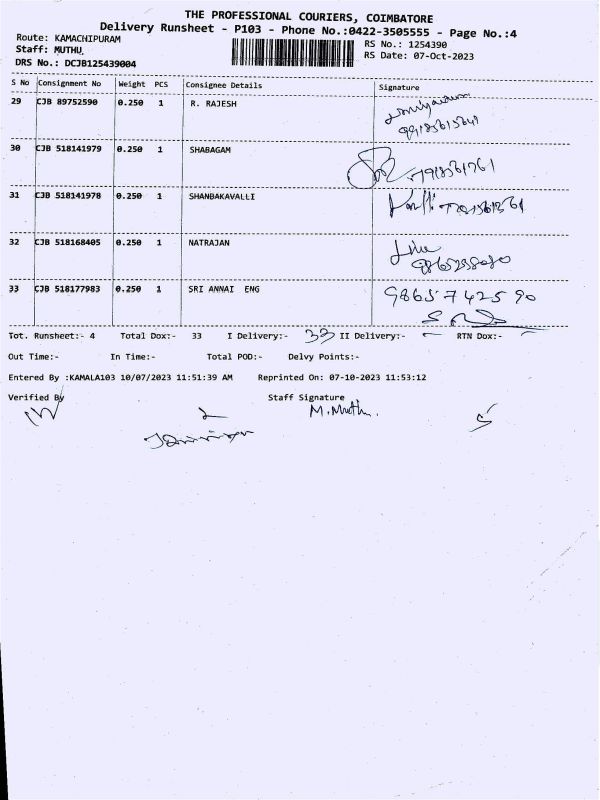 THE PROFESSIONAL COURIERS, COIMBATORE
Delivery Runsheet - P103 - Phone No.:0422-3505555 - Page No.:4
Route: KAMACHIPURAM
RS No.: 1254390
Staff: MUTHU.
RS Date: 07-Oct-2023
DRS No.: DCJB125439004
S No Consignment No Weight PCS Consignee Details Signature
29 CJB 89752590 0.250 1 R. RAJESH
30 CJB 518141979 0.250 1 SHABAGAM
31 CJB 518141978 0.250 1 SHANBAKAVALLI
32 CJB 518168405 0.250 1 NATRAJAN
33 CJB 518177983 0.250 1 SRI ANNAI ENG 9865742590
Tot. Runsheet:- 4 Total Dox:- 33 I Delivery:- 33 II Delivery:- - RTN Dox:-
Out Time:- In Time:- Total POD:- Delvy Points:-
Entered By :KAMALA103 10/07/2023 11:51:39 AM Reprinted On: 07-10-2023 11:53:12
Verified By Staff Signature
M. Muthu.